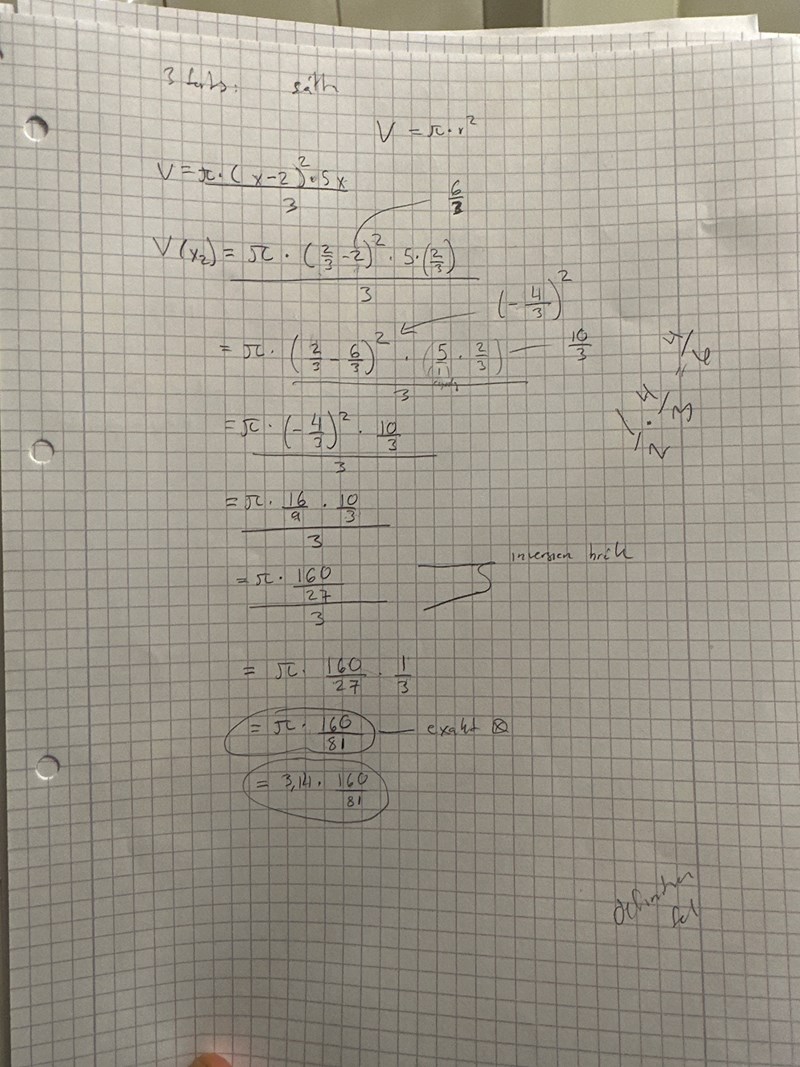 3 forts: sätt
V = π·r²
V = π·(x-2)²·5x / 3
6/3
V(x₂) = π · (2/3 - 2)² · 5·(2/3) / 3
(-4/3)²
= π · (2/3 - 6/3)² · (5/1 · 2/3) / 3
10/3
= π · (-4/3)² · 10/3 / 3
= π · 16/9 · 10/3 / 3
= π · 160/27 / 3
inversen bråk
= π · 160/27 · 1/3
= π · 160/81 — exakt
= 3,14 · 160/81